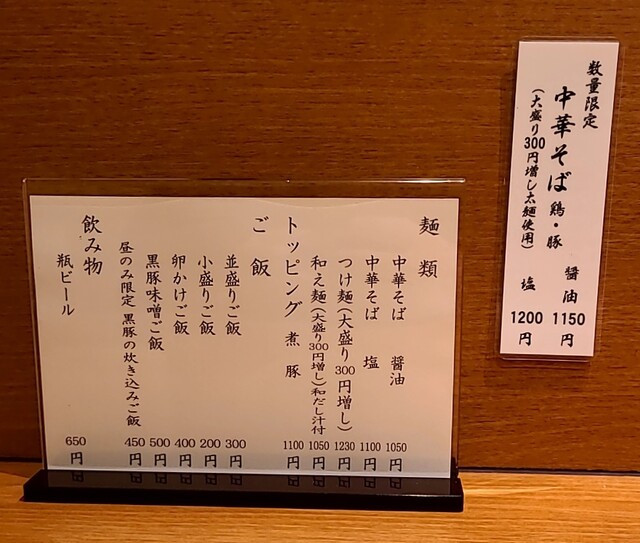 数量限定
中華そば 鶏・豚
(大盛り300円増し太麺使用)
醤油 1150円
塩 1200円
麺類
中華そば 醤油 1050円
中華そば 塩 1100円
つけ麺(大盛り300円増し) 1230円
和え麺(大盛り300円増し)和だし汁付 1050円
トッピング 煮豚 1100円
ご飯
並盛りご飯 300円
小盛りご飯 200円
卵かけご飯 400円
黒豚味噌ご飯 500円
昼のみ限定 黒豚の炊き込みご飯 450円
飲み物
瓶ビール 650円